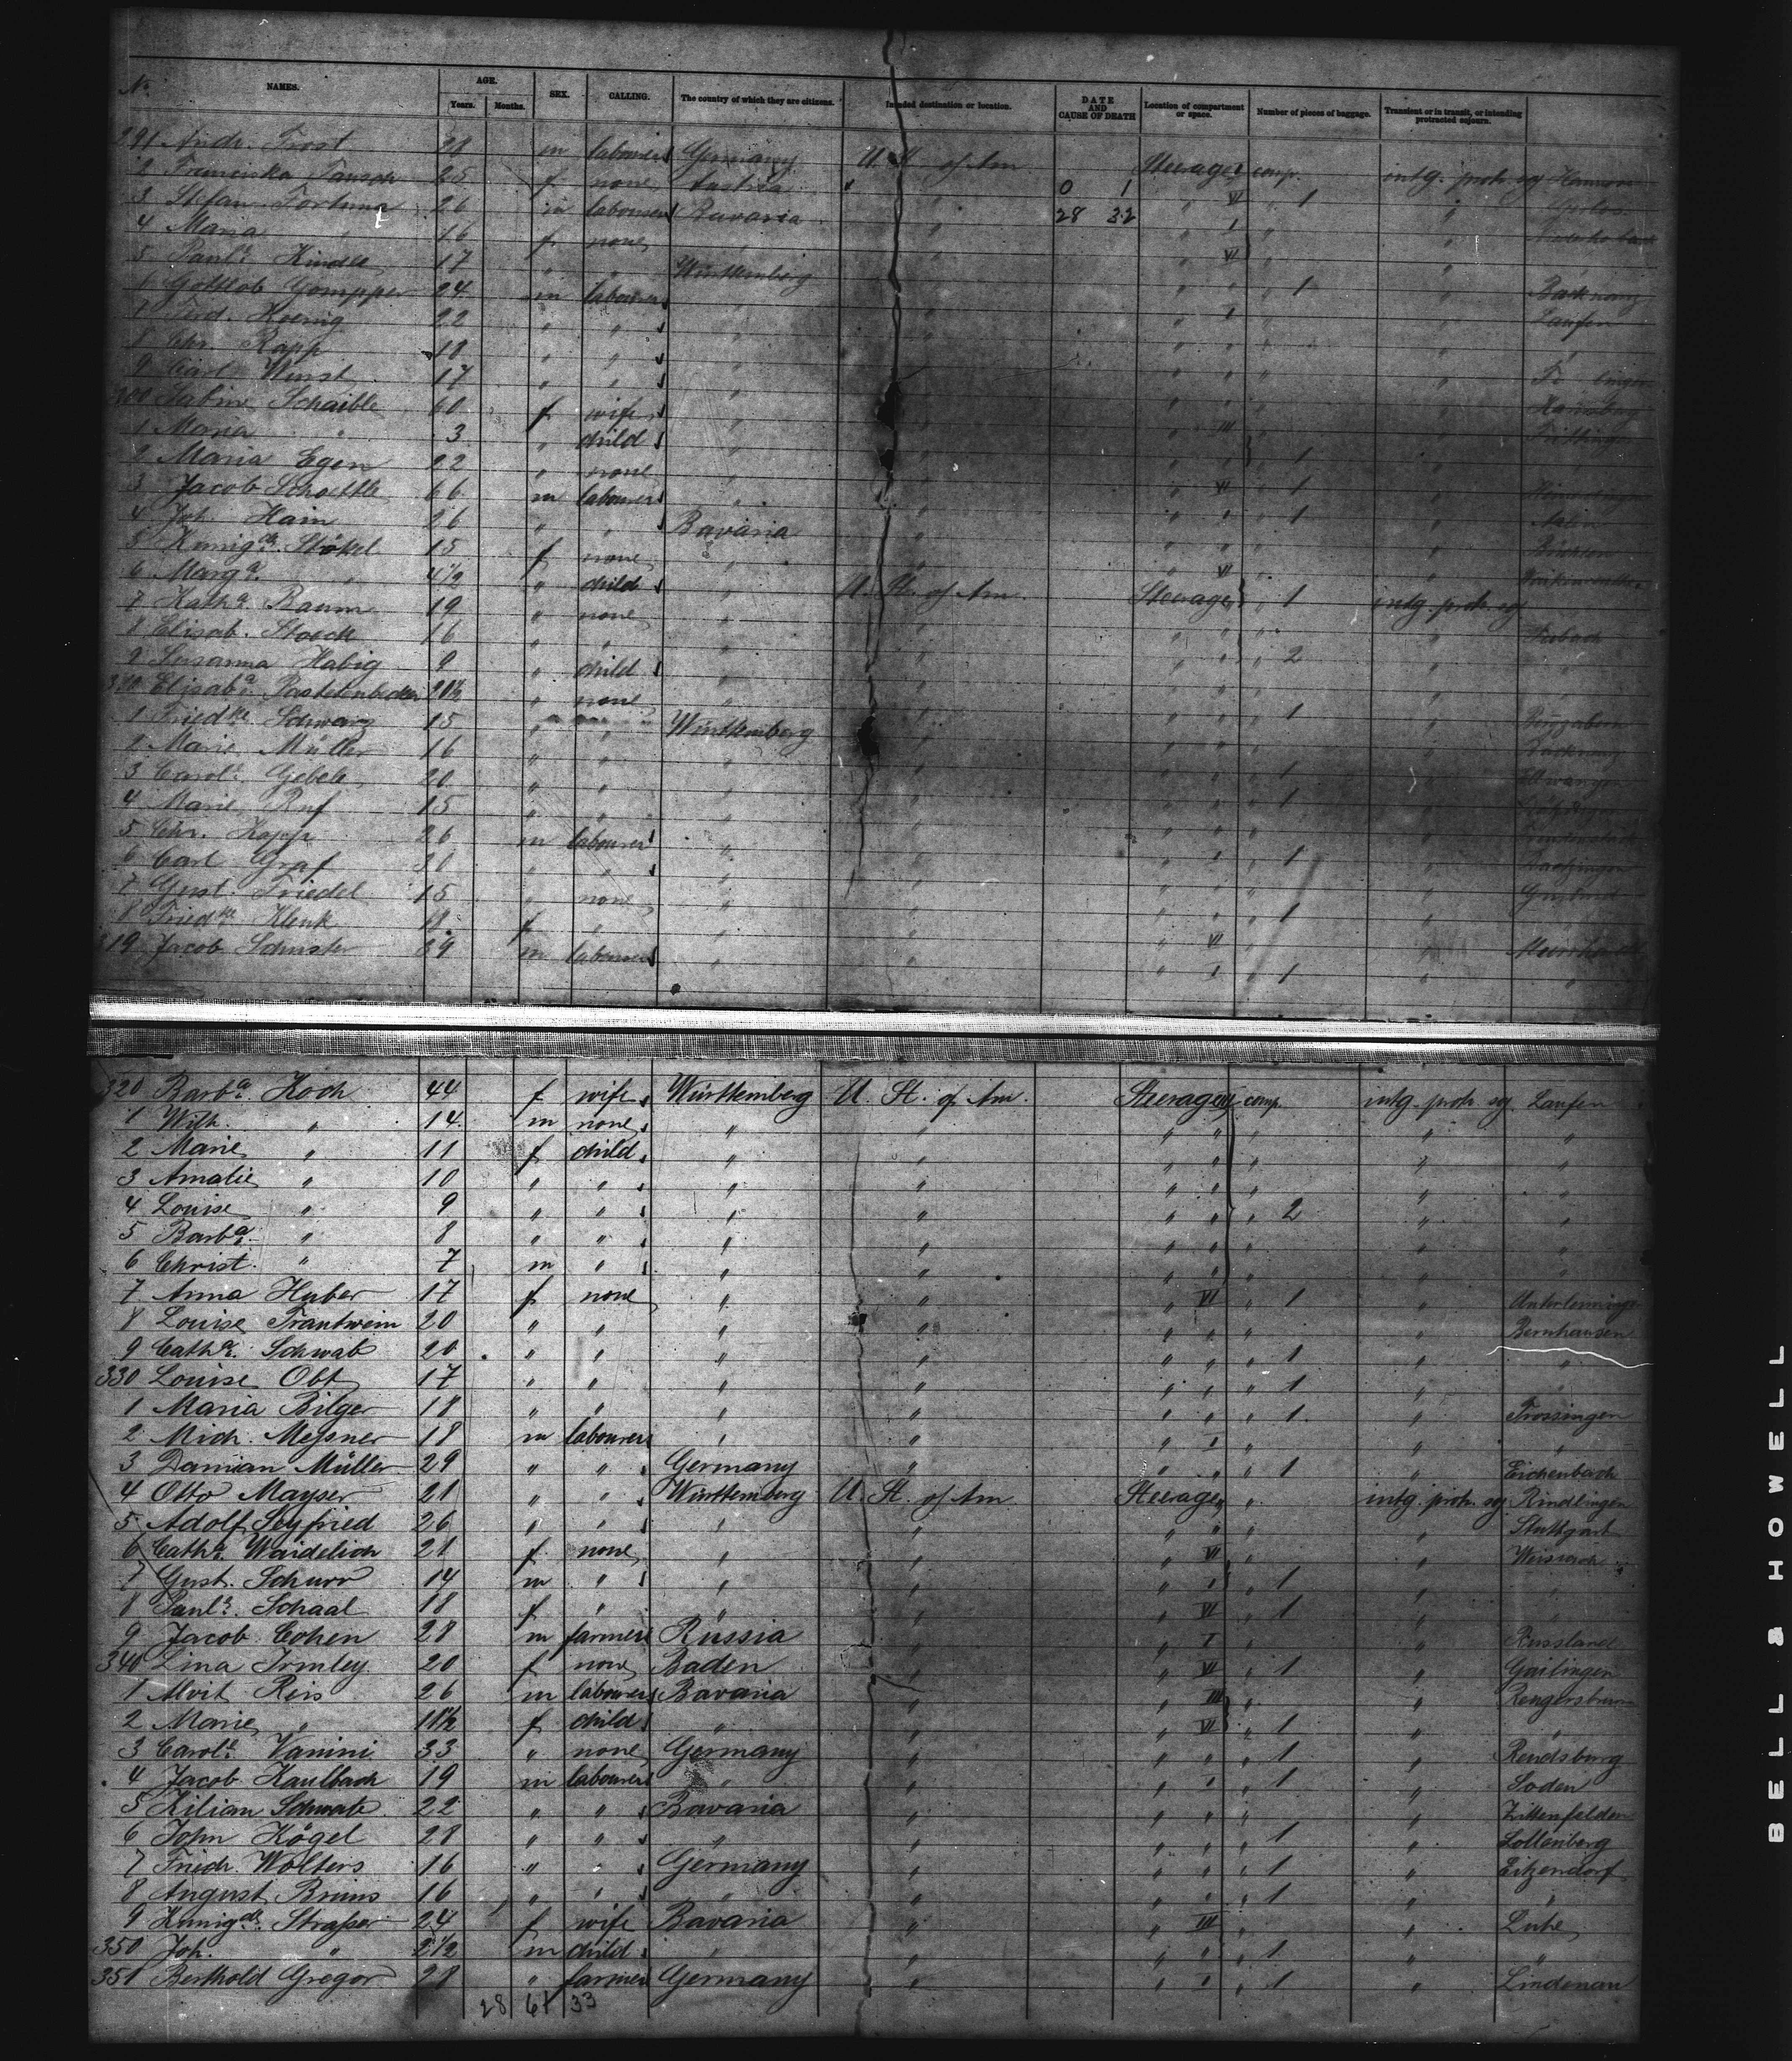 No. NAMES. AGE. Years. Months. SEX. CALLING. The country of which they are citizens. Intended destination or location. DATE AND CAUSE OF DEATH Location of compartment or space. Number of pieces of baggage. Transient or in transit, or intending protracted sojourn.
291 Andr. Frost m labourer Germany U. St. of Am Steerage comp. intg. protr. soj
2 Franciska 25 f none Austria " 0 1 " VI " 1 "
3 Stefan Fortuna 26 m labourer Bavaria " 28 32 " I " "
4 Maria " 16 f none " " " VI " "
5 Paul. Kindle 17 " " Württemberg " " " " 1 " Backnang
6 Gottlob Gompper 24 m labourer " " " I " " Laufen
7 Ferd. Koenig 22 " " " " " " " " "
8 Chr. Rapp 18 " " " " " " " "
9 Carl Wurst 17 " " " " " " " "
300 Sabine Schaible 60 f wife " " " III " "
1 Maria " 3 " child " " " " " 1 " "
2 Maria Egen 22 " none " " " VI " 1 "
3 Jacob Schoettle 66 m labourer " " " I " 1 "
4 Joh. Hain 26 " " Bavaria " " " " "
5 Kunigde. Stökel 15 f none " " " VI " "
6 Marga. " 4½ " child " U. St. of Am. Steerage " 1 intg. protr. soj
7 Katha. Baum 19 " none " " " " " "
8 Elisab. Stoeck 16 " " " " " " " 2 " "
9 Susanna Habig 9 " child " " " " " "
310 Elisaba. Pastetenbecker 20½ " none " " " " " 1 "
1 Friedke. Schwarz 15 " " Württemberg " " " " " Backnang
2 Marie Müller 16 " " " " " " " 1 " Ellwangen
3 Carol. Gebele 20 " " " " " " " 1 "
4 Marie Ruf 15 " " " " " " " "
5 Chr. Kapp 26 m labourer " " " I " 1 "
6 Carl Graf " " " " " " " "
7 Gust. Friedel 15 " none " " " " " 1 "
8 Friedke. Klenk f " " " " VI " " Murrhardt
319 Jacob Schuster 39 m labourer " " " I " 1 " "
320 Barba. Koch 44 f wife Württemberg U. St. of Am. Steerage III comp. intg. protr. soj. Laufen
1 Wilh. " 14 m none " " " " " " "
2 Marie " 11 f child " " " " " " "
3 Amalie " 10 " " " " " " " " "
4 Louise " 9 " " " " " " " 2 " "
5 Barba. " 8 " " " " " " " " "
6 Christ. " 7 m " " " " " " " "
7 Anna Huber 17 f none " " " VI " 1 " Unterlenningen
8 Louise Trautwein 20 " " " " " " " " Bernhausen
9 Catha. Schwab 20 " " " " " " " 1 " "
330 Louise Obt 17 " " " " " " " 1 " "
1 Maria Bilger 18 " " " " " " " 1 " Trossingen
2 Mich. Meßner 18 m labourer " " " I " " "
3 Damian Müller 29 " " Germany " " " " 1 " Eichenbach
4 Otto Mayser 21 " " Württemberg U. St. of Am. Steerage " " intg. protr. soj. Rindlingen
5 Adolf Seyfried 26 " " " " " " " " Stuttgart
6 Catha. Waidelich 21 f none " " " VI " " Weissach
7 Gust. Schurr 14 m " " " " I " 1 " "
8 Paul. Schaal 18 f " " " " VI " 1 " "
9 Jacob Cohen 28 m farmer Russia " " I " " Russland
340 Lina Irmley 20 f none Baden " " VI " 1 " Gailingen
1 Alvit Reis 26 m labourer Bavaria " " III " " Rengersbrunn
2 Marie " 11½ f child " " " VI " 1 " "
3 Carol. Vanini 33 " none Germany " " " " 1 " Rendsburg
4 Jacob Kaulbach 19 m labourer " " " I " 1 " Soden
5 Kilian Schwab 22 " " Bavaria " " " " " Zittenfelden
6 John Kögel 28 " " " " " " " 1 " Lollenberg
7 Friedr. Wolters 16 " " Germany " " " " 1 " Eitzendorf
8 August Bruns 16 " " " " " " " 1 " "
9 Kunigde. Straßer 24 f wife Bavaria " " III " " Luhe
350 Joh. " 2½ m child " " " " " 1 " "
351 Berthold Gregor 28 " farmer Germany " " I " 1 " Lindenau
28 61 33
BELL & HOWELL